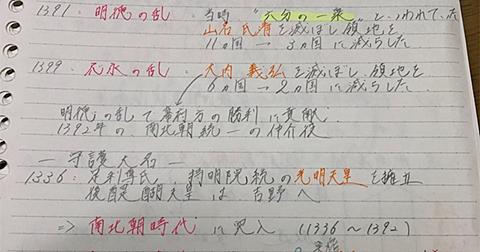 1391. 明徳の乱. 当時 "六分の一衆" といわれていた
山名 氏清を滅ぼし 領地を
11カ国 → 3カ国 に減らした
1399. 応永の乱. 大内 義弘を滅ぼし. 領地を
6カ国 → 2カ国 に減らした.
明徳の乱で幕府方の勝利に貢献.
1392年の. 南北朝統一の仲介役
― 守護大名 ―
1336: 足利尊氏. 持明院統の光明天皇を擁立
後醍醐天皇は 吉野へ
⇒ 南北朝時代 に突入 (1336 ~ 1392)